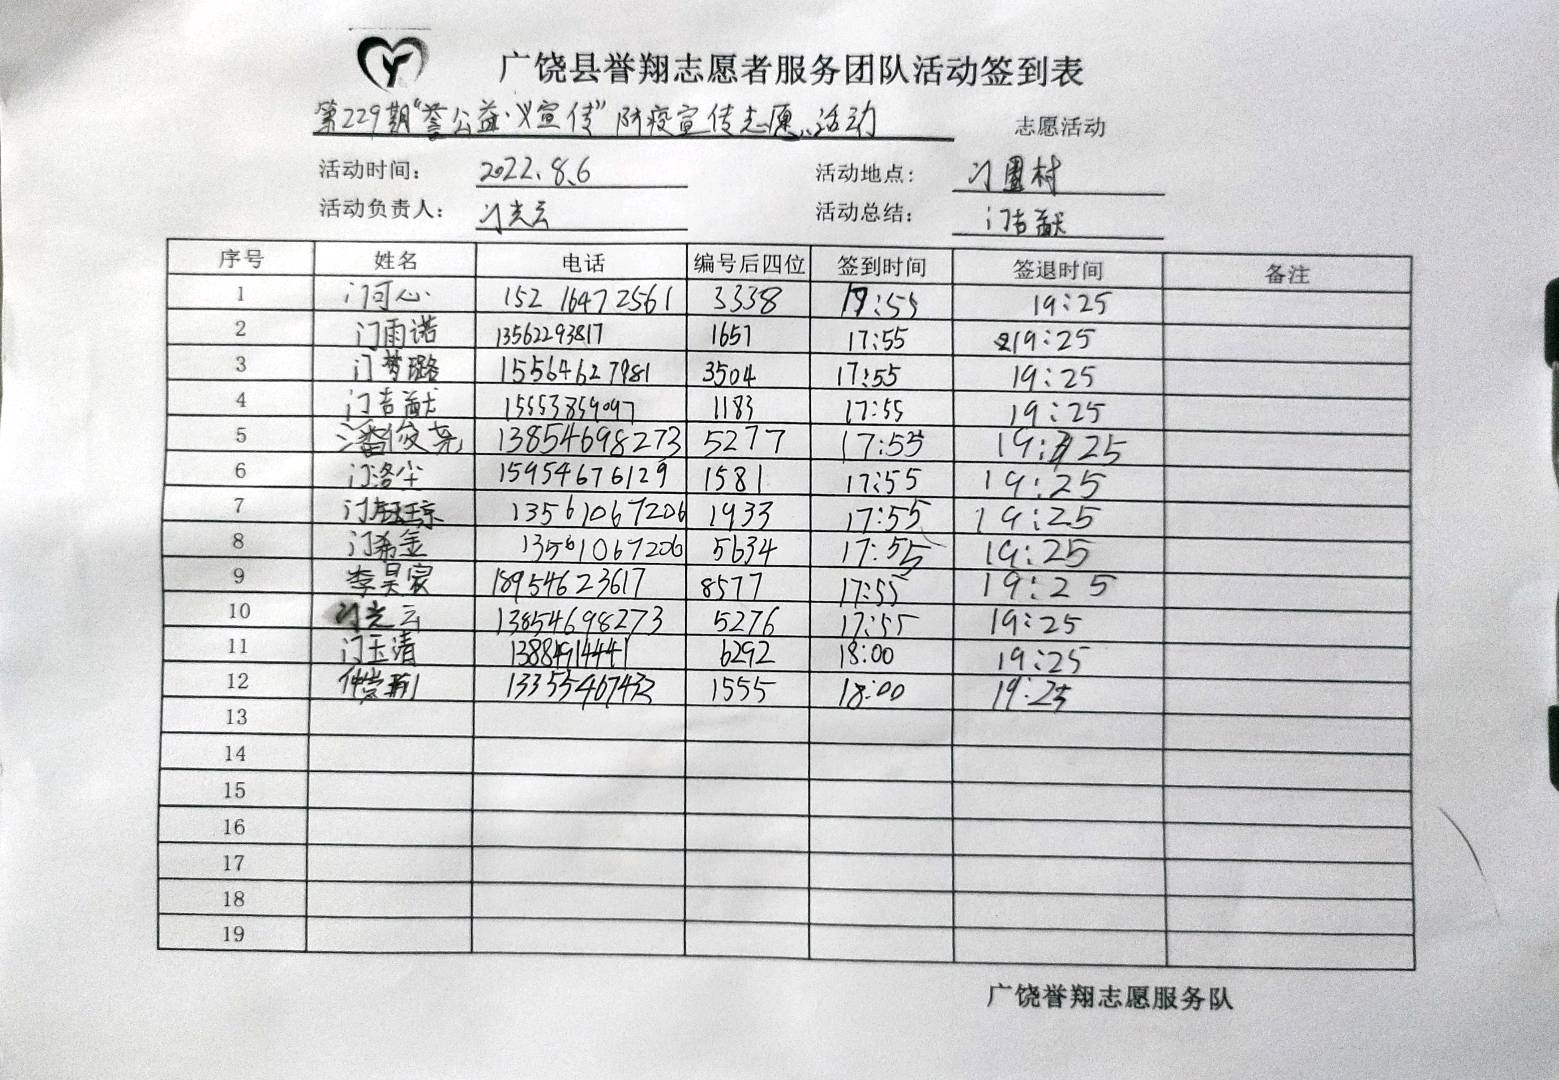 广饶县誉翔志愿者服务团队活动签到表
第229期"誉公益·义宣传"防疫宣传志愿活动 志愿活动
活动时间: 2022.8.6 活动地点: 门圈村
活动负责人: 门光云 活动总结: 门吉献
序号 姓名 电话 编号后四位 签到时间 签退时间 备注
1 门可心 152 1647 2561 3338 17:55 19:25
2 门雨诺 13562293817 1657 17:55 19:25
3 门梦璐 15564627981 3504 17:55 19:25
4 门吉献 15553859097 1183 17:55 19:25
5 潘俊菜 13854698273 5277 17:55 19:25
6 门洛尘 15954676129 1581 17:55 19:25
7 门钰琼 13561067206 1933 17:55 19:25
8 门希金 13561067206 5634 17:55 19:25
9 李昊宸 18954623617 8577 17:55 19:25
10 门光云 13854698273 5276 17:55 19:25
11 门玉清 13884914441 6292 18:00 19:25
12 1555 18:00 19:25
13
14
15
16
17
18
19
广饶誉翔志愿服务队